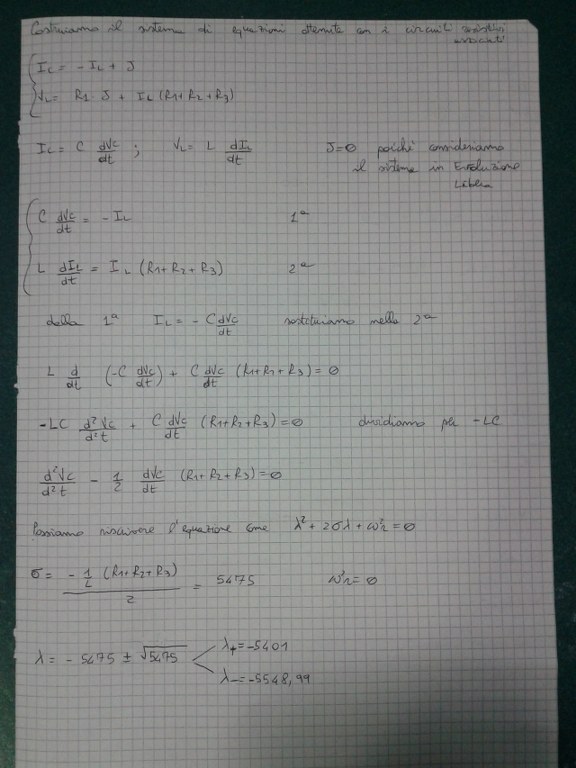 Costruiamo il sistema di equazioni ottenute con i circuiti resistivi
associati
Ic = - IL + J
VL = R1 · J + IL (R1+R2+R3)
Ic = C dVc/dt ; VL = L dIL/dt J=0 poiché consideriamo
il sistema in Evoluzione
Libera
C dVc/dt = - IL 1ª
L dIL/dt = IL (R1+R2+R3) 2ª
dalla 1ª IL = - C dVc/dt sostituiamo nella 2ª
L d/dt (-C dVc/dt) + C dVc/dt (R1+R2+R3) = 0
-LC d²Vc/d²t + C dVc/dt (R1+R2+R3) = 0 dividiamo per -LC
d²Vc/d²t - 1/2 dVc/dt (R1+R2+R3) = 0
Possiamo riscrivere l'equazione come λ² + 2σλ + ω²n = 0
σ = (- 1/L (R1+R2+R3))/2 = 5475 ω²n = 0
λ = - 5475 ± √5475 λ+ = -5401
λ- = -5548,99